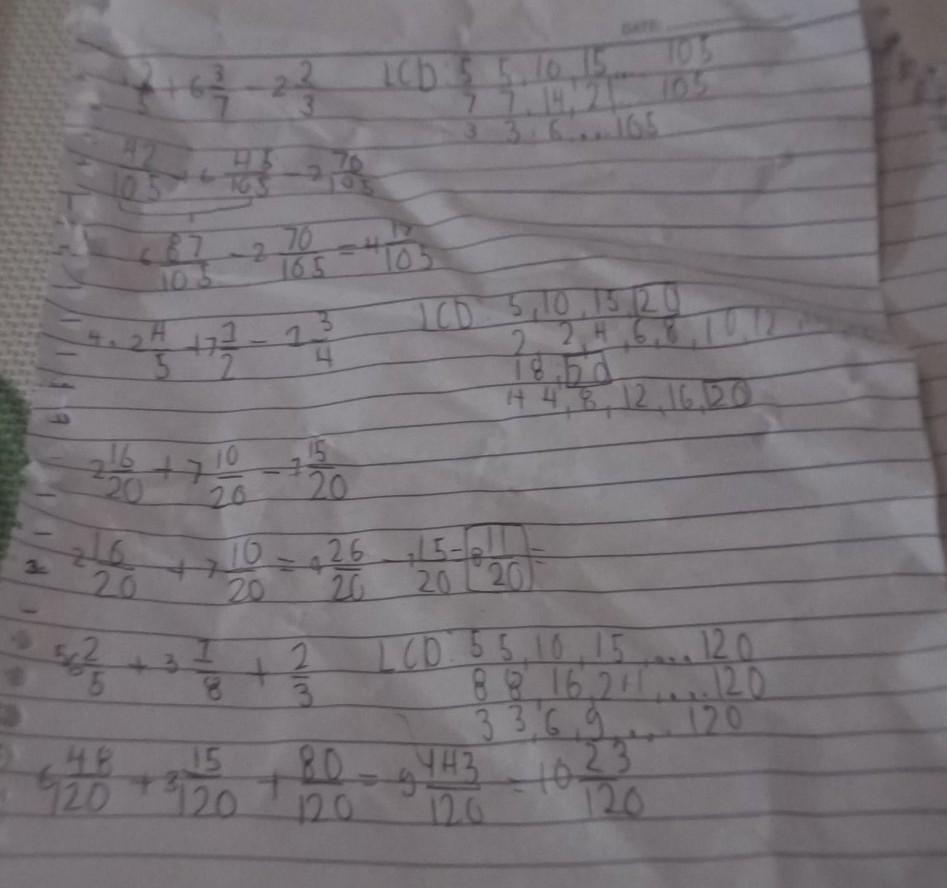 DATE:
2/5 + 6 3/7 - 2 2/3 LCD 5 5, 10, 15... 105
7 7, 14, 21... 105
3 3, 6...105
42/105 + 6 45/105 - 2 70/105
6 87/105 - 2 70/105 = 4 17/105
4. 2 4/5 + 7 1/2 - 1 3/4 LCD 5, 10, 15, 20
2 2, 4, 6, 8, 10, 12
18, 20
4 4, 8, 12, 16, 20
2 16/20 + 7 10/20 - 1 15/20
2 16/20 + 7 10/20 = 9 26/20 - 1 15/20 = 8 11/20 =
5. 6 2/5 + 3 1/8 + 2/3 LCD: 5 5, 10, 15, ... 120
8 8, 16, 24, ... 120
3 3, 6, 9, ... 120
6 48/120 + 3 15/120 + 80/120 = 9 443/120 = 10 23/120